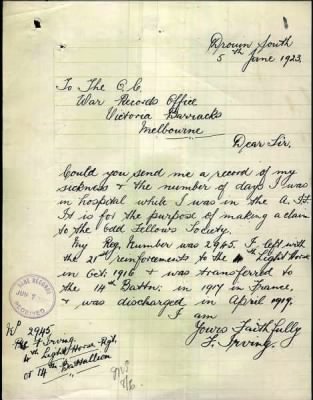 Drouin South
5th June 1923.
To The O.C.
War Records Office
Victoria Barracks
Melbourne
Dear Sir,
Could you send me a record of my
sickness & the number of days I was
in hospital while I was in the A. I.F.
It is for the purpose of making a claim
to the Odd Fellows Society.
My Reg. Number was 2945. I left with
the 21st reinforcements to the 4th Light Horse
in Oct: 1916 & was transferred to
the 14th Battn. in 1917 in France,
& was discharged in April 1919.
I am
Yours Faithfully
F. Irving.
BASE RECORDS
JUN 7
No 2945.
Pte F Irving.
4th Light Horse Rgt.
& 14th Battallion